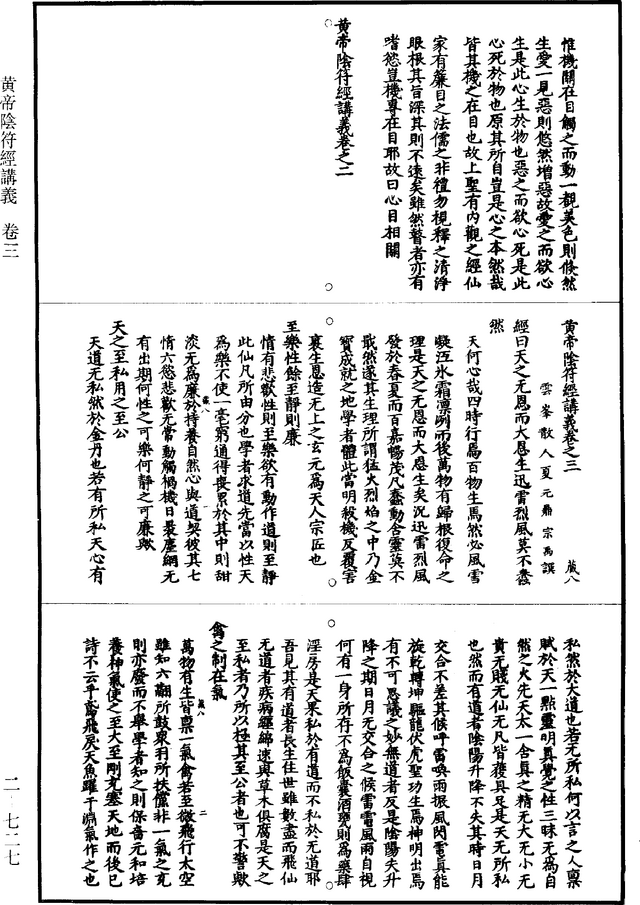 黄帝陰符經講義　卷三
二—七二七
惟機關在目觸之而動一覩美色則倏然
生愛一見惡則悠然增惡故愛之而欲心
生是此心生於物也惡之而欲心死是此
心死於物也原其所自豈是心之本然哉
皆其機之在目也故上聖有内觀之經仙
家有簾目之法儒之非禮勿視釋之清淨
眼根其旨深其則不遠矣雖然瞽者亦有
嗜慾豈機專在目耶故曰心目相關
黄帝陰符經講義卷之二
黄帝陰符經講義卷之三　藏八
雲峯散人夏元鼎宗禹譔
經曰天之无恩而大恩生迅雷烈風莫不蠢
然
天何心哉四時行焉百物生焉然必風雪
凝沍氷霜凛冽而後萬物有歸根復命之
理是天之无恩而大恩生矣況迅雷烈風
發於春夏而百嘉暢茂凡蠢動含靈莫不
戢然遂其生理所謂猛火烈焰之中乃金
寳成就之地學者體此當明殺機反覆害
裏生恩造无上之玄元爲天人宗匠也
至樂性餘至靜則廉
情有悲歡性則至樂欲有動作道則至靜
此仙凡所由分也學者求道先當以性天
爲樂不使一毫窮通得喪累於其中則甜
淡无爲廉於持養自然心與道契彼其七
情六慾悲歡无常動觸禍機日裹塵網无
有出期何性之可樂何靜之可廉歟
天之至私用之至公
天道无私然於金丹也若有所私天心有
私然於大道也若无所私何以言之人禀
賦於天一點靈明真覺之性三昧无爲自
然之火先天太一含真之精无大无小无
貴无賤无仙无凡皆獲具足是天无所私
也然而有道者陰陽升降不失其時日月
交合不差其候呼雷喚雨振風閃電真能
旋乾轉坤驅龍伏虎聖功生焉神明出焉
有不可思議之妙无道者反是陰陽失升
降之期日月无交合之候雷電風雨自視
何有一身所存不爲飯囊酒甕則爲藥肆
淫房是天果私於有道而不私於无道耶
吾見其有道者長生住世雖數盡而飛仙
无道者疾病纏綿速與草木俱腐是天之
至私者乃所以極其至公者也可不警歟
禽之制在氣
萬物有生皆禀一氣禽若至微飛行太空
雖知六翮所鼓衆羽所扶儻非一氣之充
則亦廢而不舉學者知之則保嗇元和培
養神氣使之至大至剛充塞天地而後已
詩不云乎鳶飛戾天魚躍于淵氣作之也